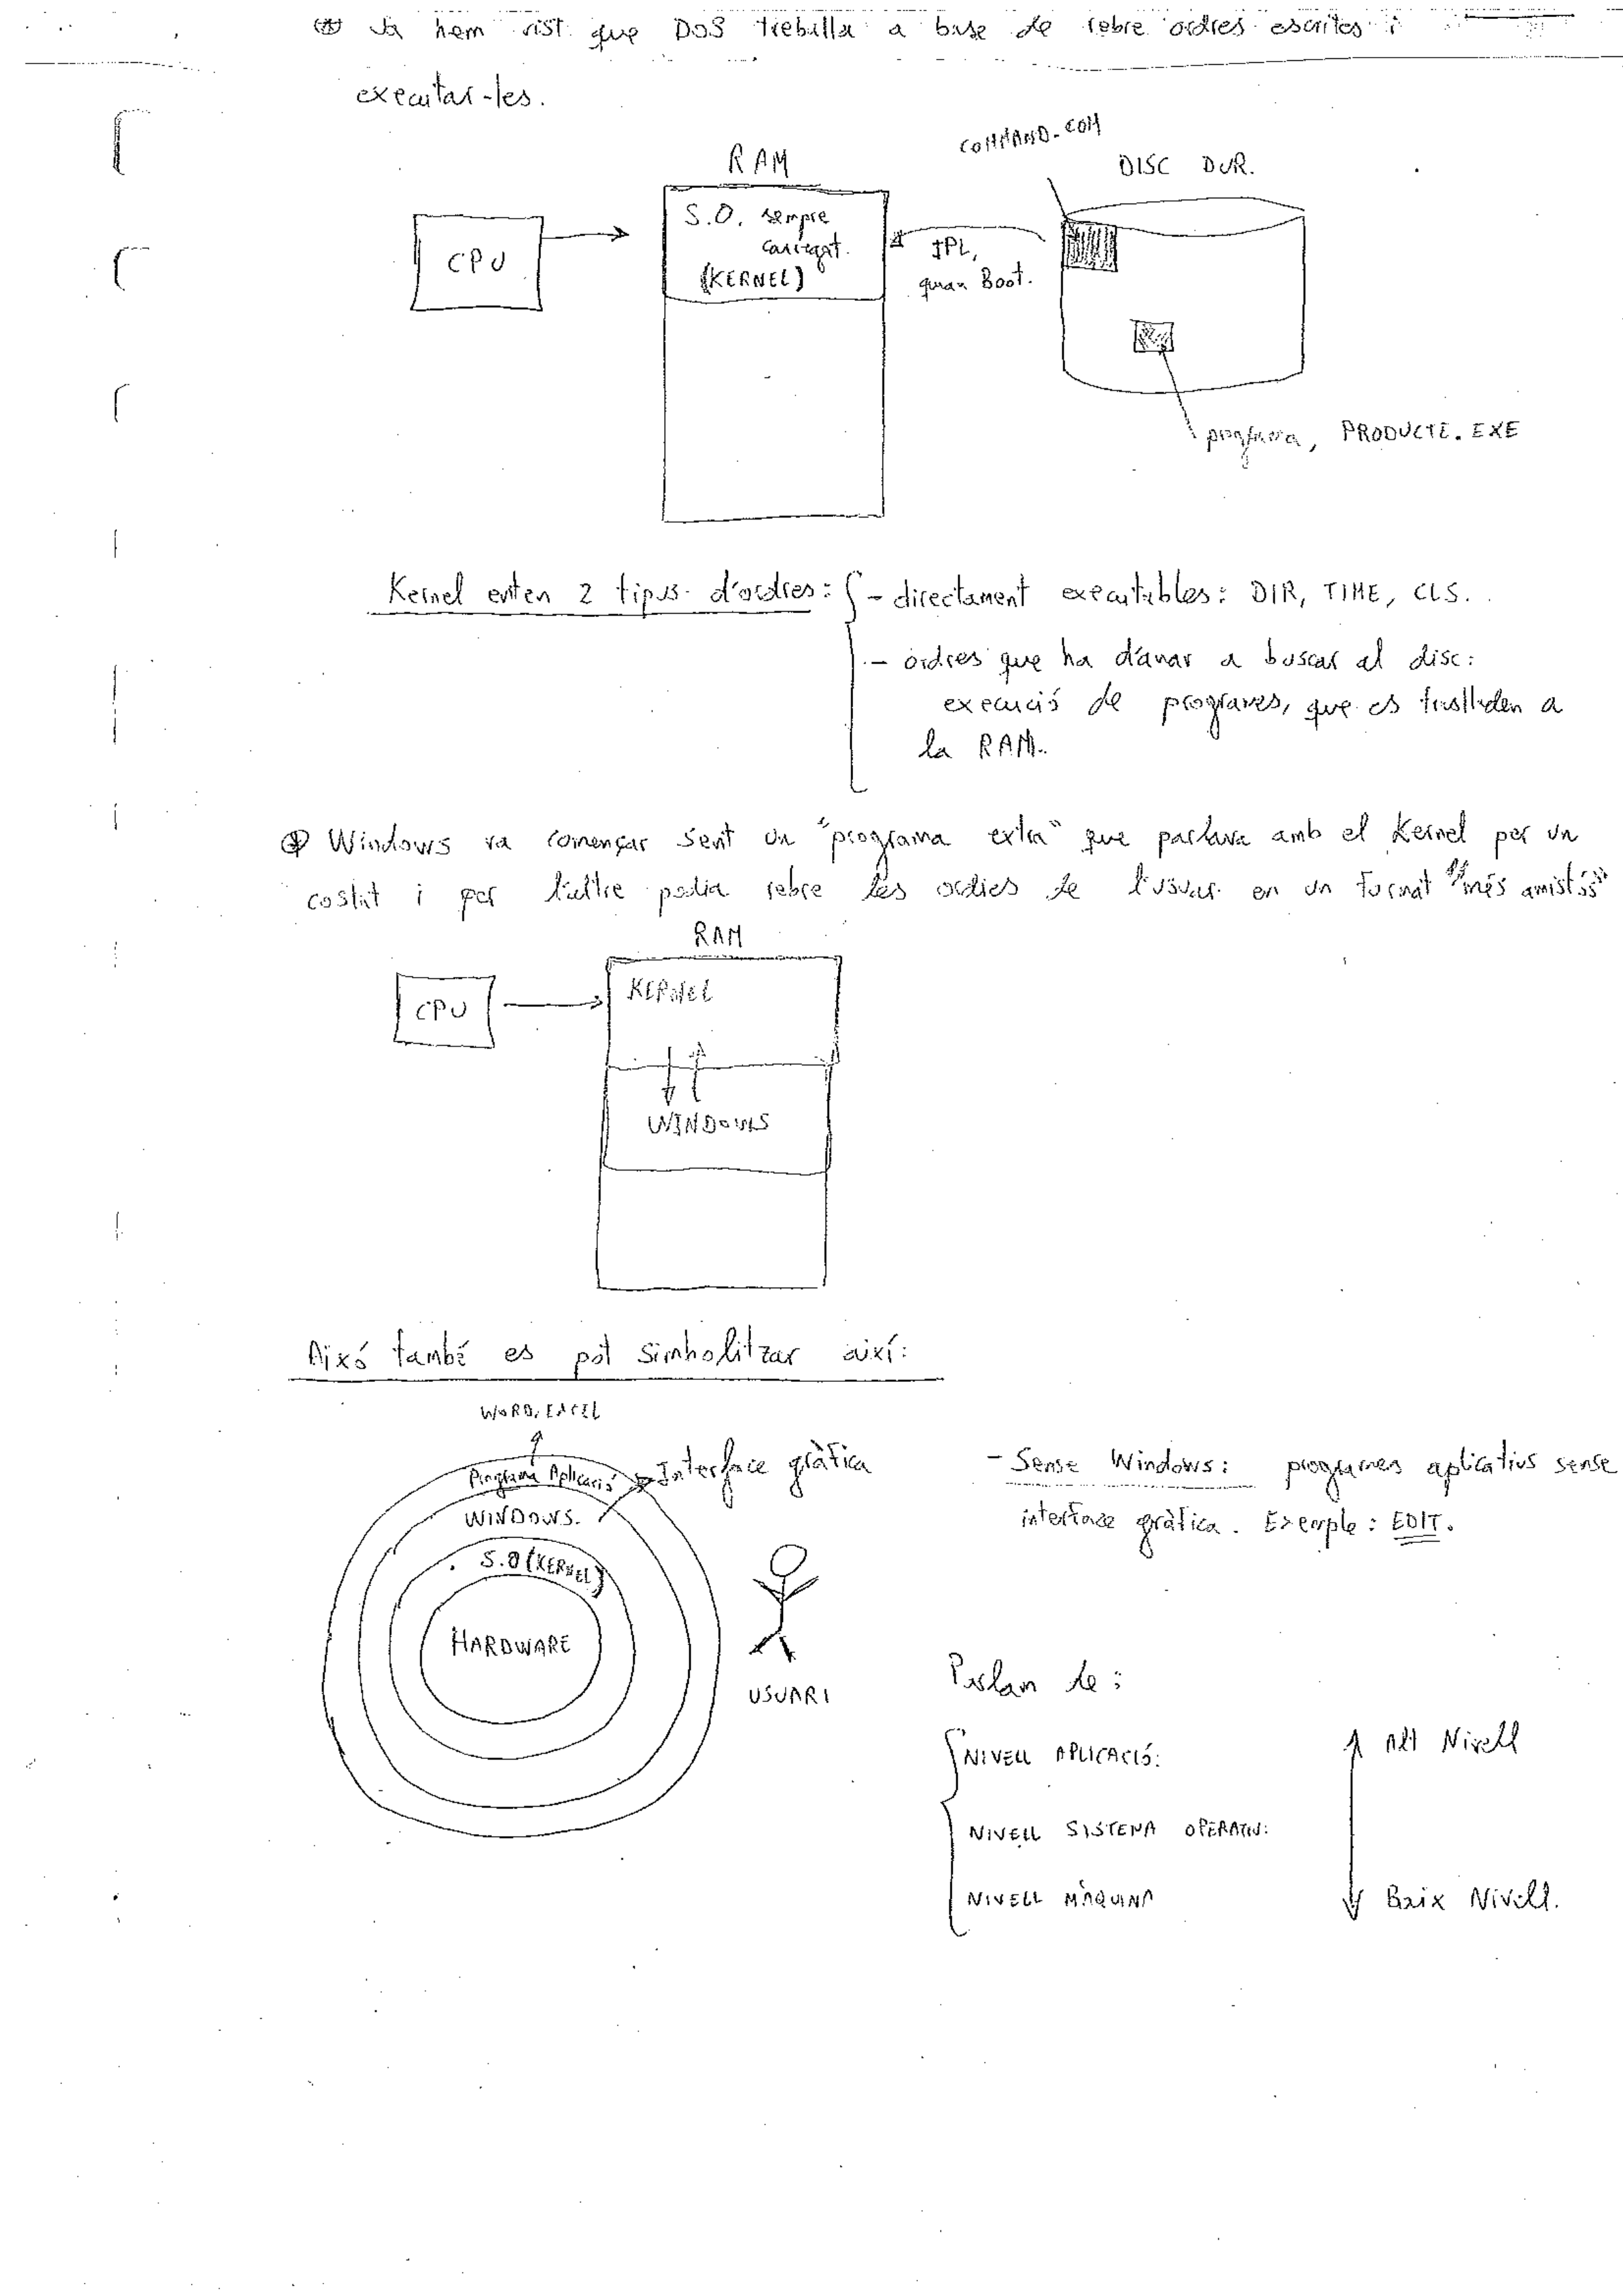 Ja hem vist que DOS treballa a base de rebre ordres escrites i
executar-les.
COMMAND.COM
RAM
DISC DUR.
CPU
S.O. sempre
carregat.
(KERNEL)
IPL,
quan Boot.
programa, PRODUCTE.EXE
Kernel enten 2 tipus d'ordres: - directament executables: DIR, TIME, CLS.
- ordres que ha d'anar a buscar al disc:
execució de programes, que es traslladen a
la RAM.
Windows va començar sent un "programa extra" que parlava amb el Kernel per un
costat i per l'altre podia rebre les ordres de l'usuari en un format "més amistós"
RAM
CPU
KERNEL
WINDOWS
Aixó també es pot simbolitzar així:
WORD, EXCEL
Programa Aplicació
Interface gràfica
WINDOWS.
S.O (KERNEL)
HARDWARE
USUARI
- Sense Windows: programes aplicatius sense
interface gràfica. Exemple: EDIT.
Parlan de:
NIVELL APLICACIÓ:
NIVELL SISTEMA OPERATIU:
NIVELL MÀQUINA
Alt Nivell
Baix Nivell.